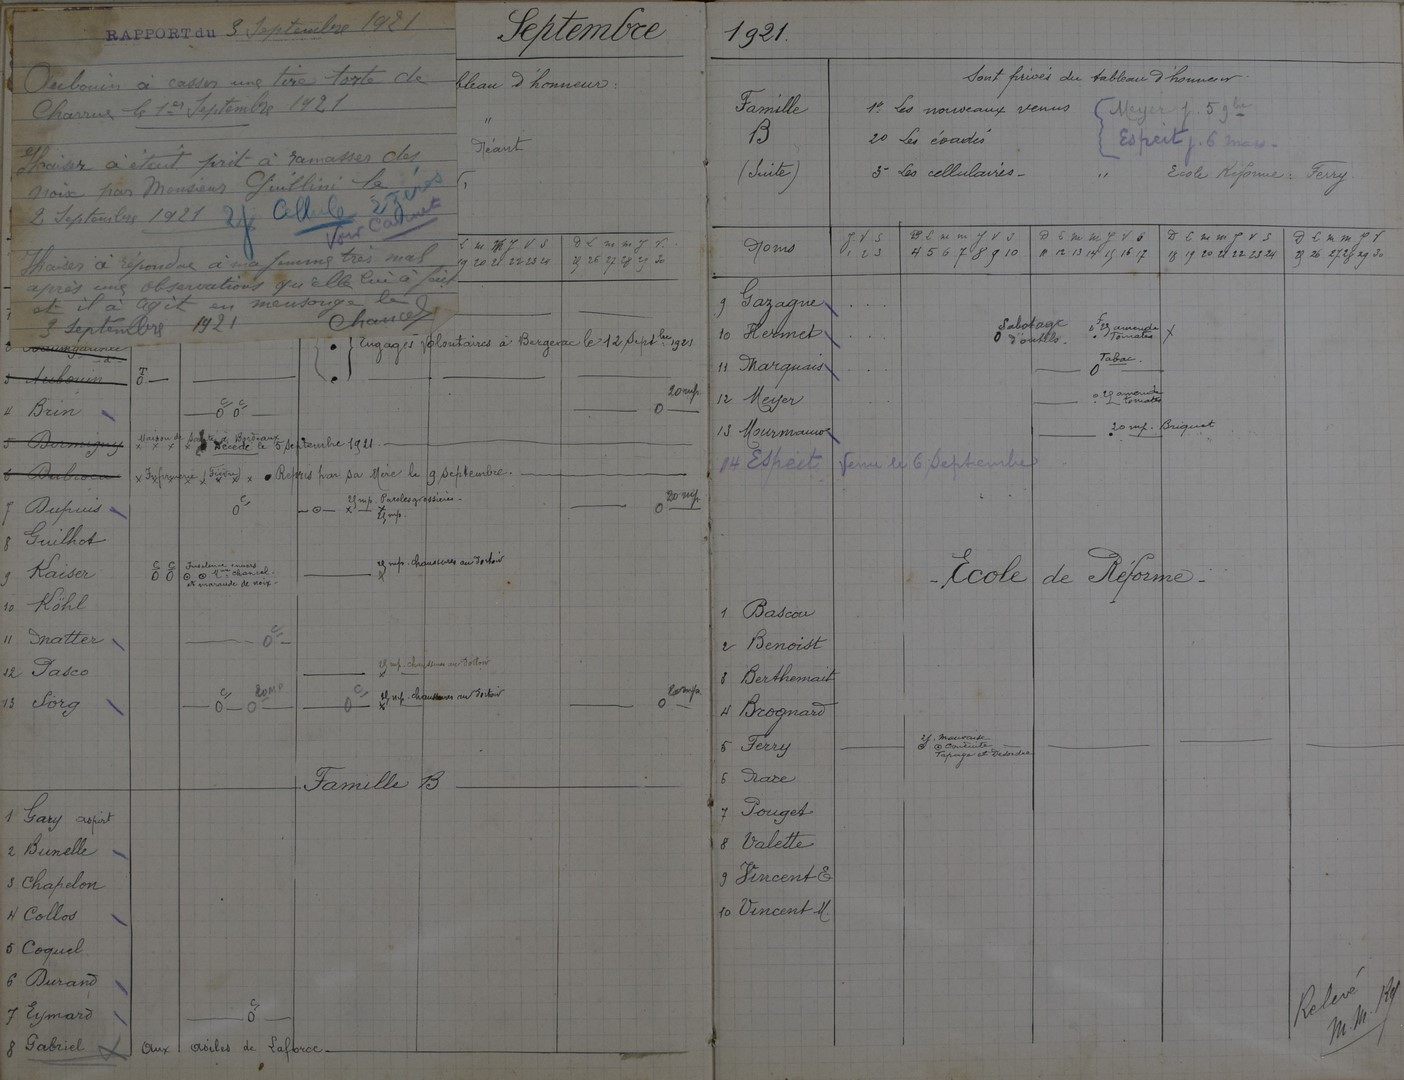 RAPPORT du 3 Septembre 1921
Aubouin à casser une tire torte de
Charrue le 1er Septembre 1921
Kaiser à était prit à ramasser des
noix par Monsieur le
2 Septembre 1921 2j Cellule
Voir Cabinet
Kaiser à répondre à ma femme très mal
après une observations qu'elle lui à fait
et il à agit en mensonge le
3 Septembre 1921 Chancel
Septembre
bleau d'honneur:
"
Néant
L M M J V S D L M M J V
19 20 21 22 23 24 25 26 27 28 29 30
Engagés volontaires à Bergerac le 12 Septbre 1921
3 Aubouin T
4 Brin C C 20 mp
5 Maison de Bordeaux Décédé le 5 Septembre 1921
6 Infirmerie Repris par sa Mère le 9 Septembre.
7 Dupuis C 2j mp. Paroles grossières 20 mp
2j mp.
8 Guilhot
9 Kaiser C C Insolence envers Mme Chancel et maraude de noix. 2j mp. chaussures au dortoir
10 Köhl
11 Natter C
12 Pasco 2j mp. chaussures au dortoir
13 Sorg C 20 mp C 2j mp. chaussures au dortoir 20 mp
Famille B
1 Gary aspirt
2 Bunelle
3 Chapelon
4 Collos
5 Coquel
6 Durand
7 Eymard C
8 Gabriel Aux asiles de Laforce
1921.
Sont privés du tableau d'honneur:
Famille 1° Les nouveaux venus Meyer j. 5 9bre
B 2° Les évadés Espeit j. 6 mars
(Suite) 3° Les cellulaires - " Ecole Réforme: Ferry
Noms J V S D L M M J V S D L M M J V S D L M M J V S D L M M J V
1 2 3 4 5 6 7 8 9 10 11 12 13 14 15 16 17 18 19 20 21 22 23 24 25 26 27 28 29 30
9 Gazagne
10 Hermet Sabotage d'outils. 2j amende tomates
11 Marquais Tabac.
12 Meyer 2j amende tomates
13 Mourmauve 20 mp. Briquet
14 Espeit Venu le 6 Septembre
- Ecole de Réforme -
1 Bascou
2 Benoist
3 Berthemait
4 Brognard
5 Ferry 2j. Mauvaise Conduite Tapage et Désordre
6 Nare
7 Pouget
8 Valette
9 Vincent E
10 Vincent M.
Relevé
M. M.